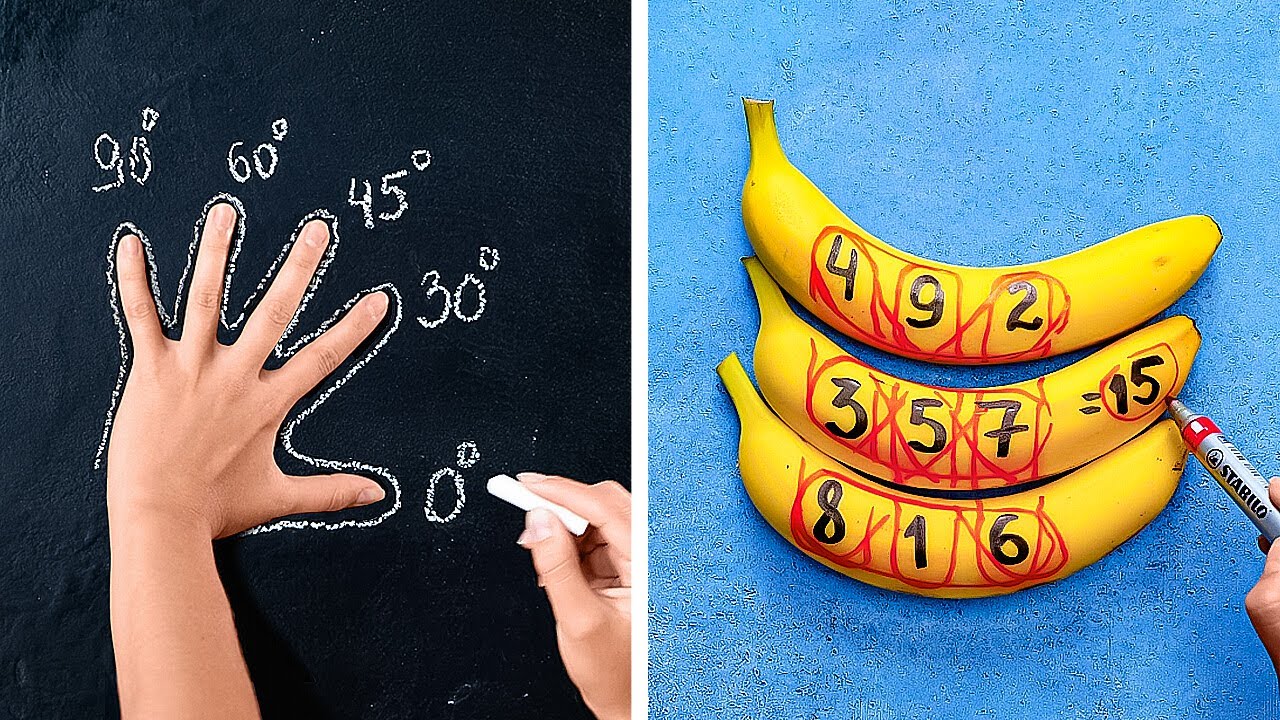 90°
60°
45°
30°
0°
4 9 2
3 5 7 = 15
8 1 6
STABILO